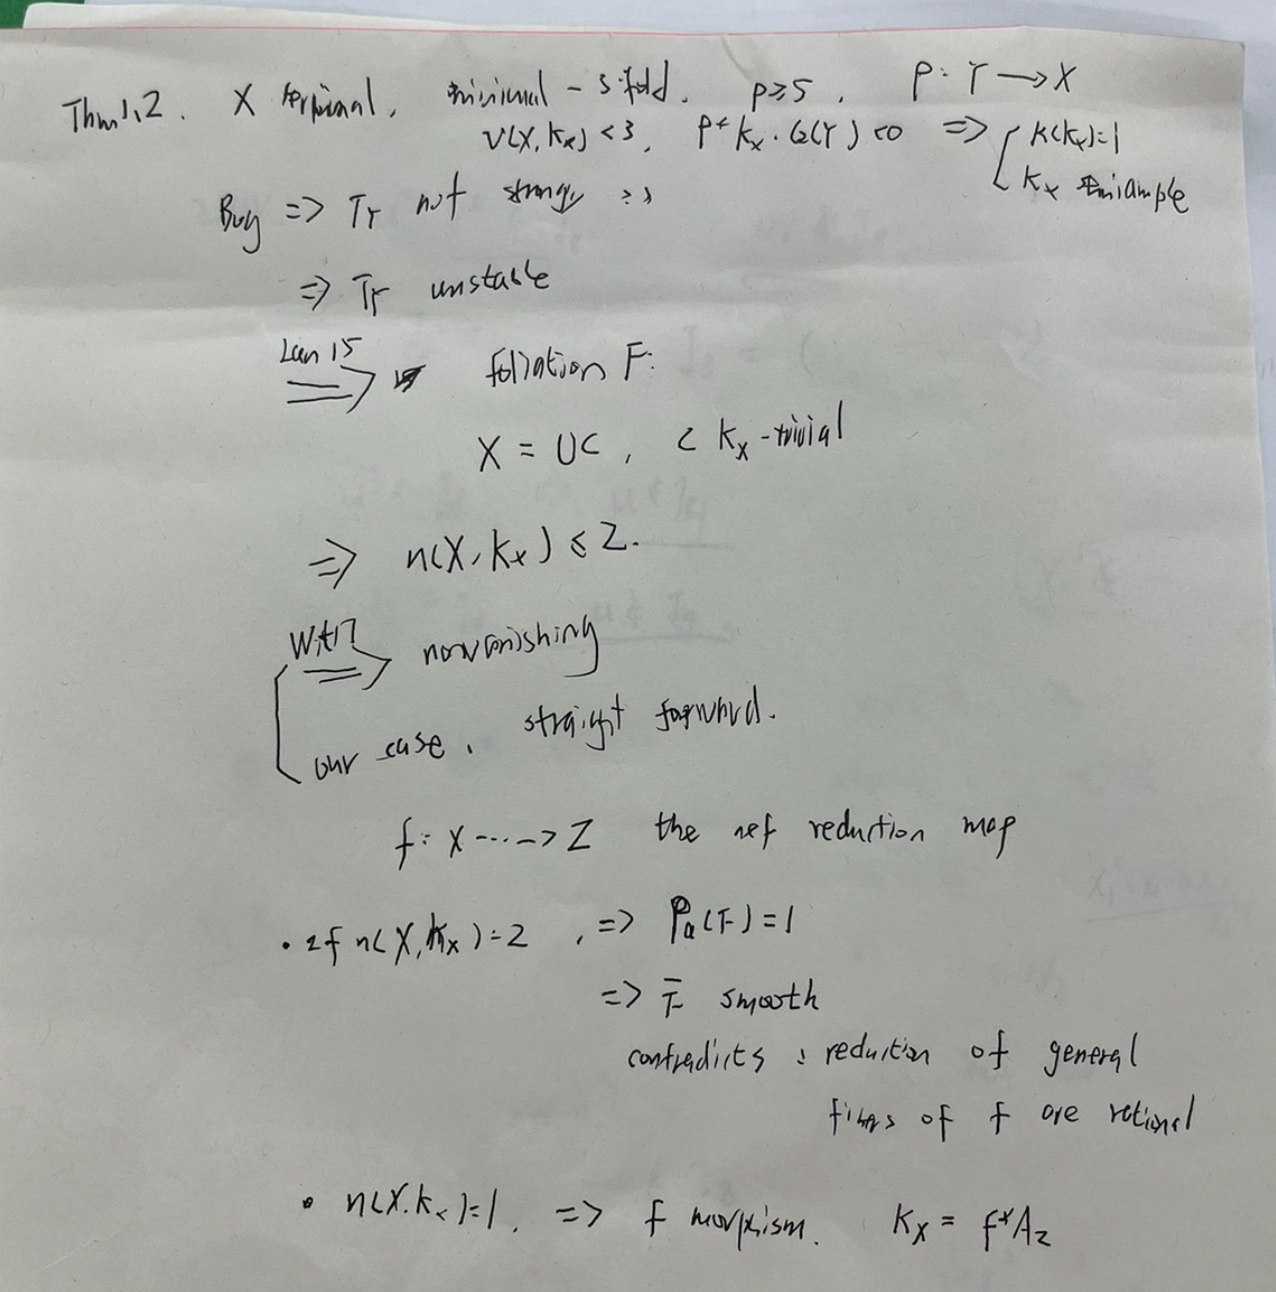 Thm1.2. X terminal, minimal - 3-fold. p≥5, ρ: Y → X
ν(X, Kx) < 3, ρ* Kx · C₂(Y) < 0 => { κ(Kx)=1
Kx semiample
Bog => TY not strongly ss
=> TY unstable
Lan 15 => foliation F:
X = UC, C Kx-trivial
=> n(X, Kx) ≤ 2.
Wit17 => nonvanishing
our case, straight forward.
f: X ---> Z the nef reduction map
• If n(X, Kx)=2, => Pa(F)=1
=> F̄ smooth
contradicts : reduction of general
fibers of f are rational
• n(X.Kx)=1, => f morphism. Kx = f*Az